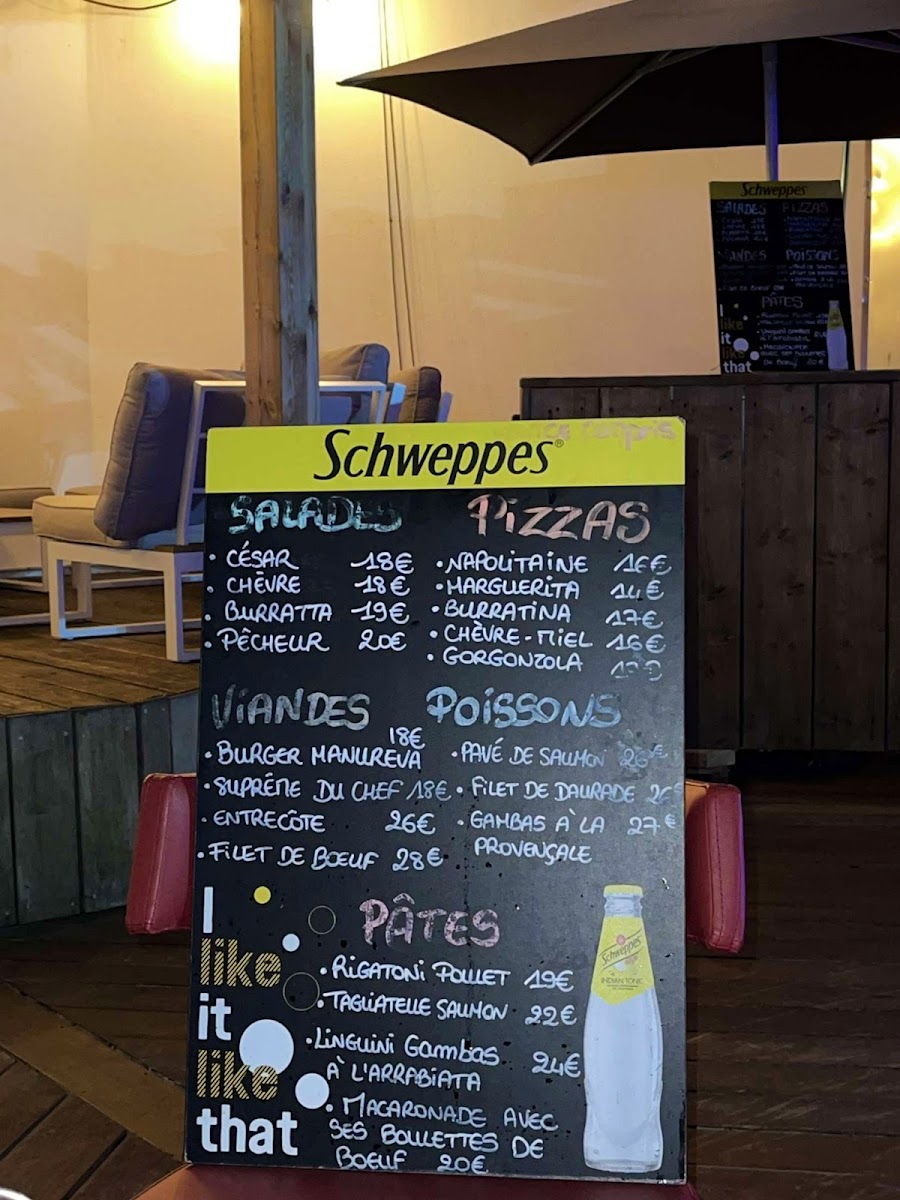 Schweppes®
SALADES
• CÉSAR 18€
• CHÈVRE 18€
• BURRATTA 19€
• PÊCHEUR 20€
PIZZAS
• NAPOLITAINE 16€
• MARGUERITA 14€
• BURRATINA 17€
• CHÈVRE-MIEL 16€
• GORGONZOLA
VIANDES
18€
• BURGER MANUREVA
• SUPRÊME DU CHEF 18€
• ENTRECÔTE 26€
• FILET DE BOEUF 28€
POISSONS
• PAVÉ DE SAUMON 26€
• FILET DE DAURADE 26€
• GAMBAS À LA 27€
PROVENÇALE
PÂTES
• RIGATONI POULET 19€
• TAGLIATELLE SAUMON 22€
• LINGUINI GAMBAS 24€
À L'ARRABIATA
• MACARONADE AVEC
SES BOULETTES DE
BOEUF 20€
I
like
it
like
that
Schweppes
INDIAN TONIC
Schweppes
SALADES
PIZZAS
VIANDES
POISSONS
PÂTES
I
like
it
like
that